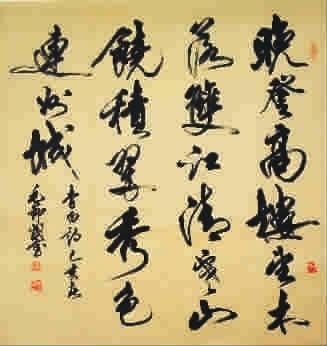 晚登高樓望木
落雙江清寒山
饒積翠秀色
連州城
李白詩